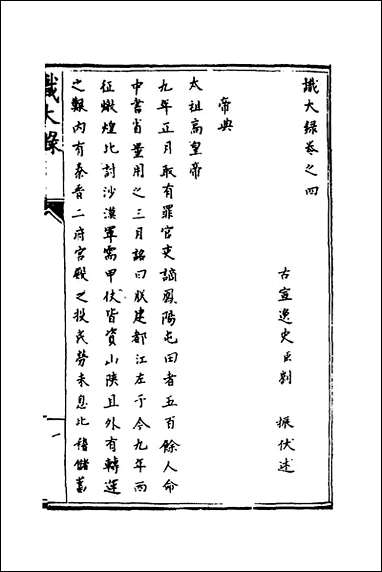 識大錄卷之四
古宣逸史臣劉 振伏述
帝典
太祖高皇帝
九年正月取有罪官吏謫鳳陽屯田者五百餘人命
中書省量用之三月詔曰朕建都江左于今九年西
征燉煌北討沙漠軍需甲仗皆資山陝且外有轉運
之艱內有秦晋二府宮殿之役民勞未息比稽儲蓄
識大錄